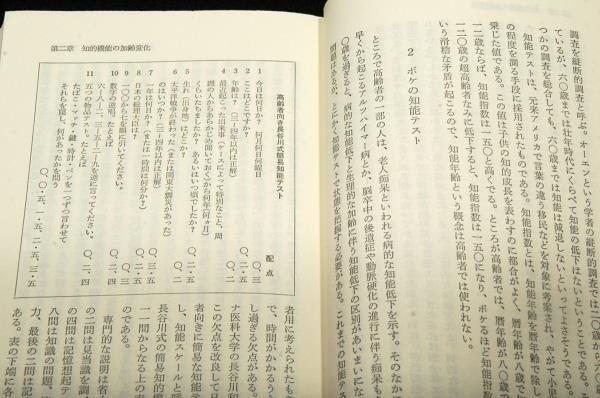 調査を縦断的調査と呼ぶ。オーエンという学者の縦断的調査では二〇歳から六〇
ているが、六〇歳までは壮年時代にくらべて知能の低下はないということである。こ
つかの調査を総合しても、六〇歳までは知能は減退しないといってよさそうである。
知能テストは、元来アメリカで言葉の違う移民などを対象に考案され、やがて小児
の程度を測る手段に採用されたものである。知能指数とは、知能年齢を暦年齢で除し
乗じた値である。この値は子供の知的成長を表わすのに都合がよく、暦年齢が八歳で
一二歳ならば、知能指数は一五〇と高くでる。ところが高齢者では、暦年齢が八〇歳で
一二〇歳の超高齢者なみに低下すると、知能指数は一五〇になり、ボケるほど知能指数
いう滑稽な矛盾が起こるので、知能年齢という概念は高齢者では使われない。
2 ボケの知能テスト
ところで高齢者の一部の人は、老人痴呆といわれる病的な知能低下を示す。そのなか
早くから起こるアルツハイマー病とか、脳卒中の後遺症や動脈硬化の進行に伴う痴呆も
〇歳を過ぎると、病的な知能低下と生理的な加齢に伴う知能低下の区別があいまいにな
問題はあるが、とにかく知能テストで状態を把握する必要がある。これまでの知能テス
第二章 知的機能の加齢変化
高齢者向き長谷川式簡易知能テスト
配点
1 今日は何日か? 何月何日何曜日 〇、三
2 ここはどこですか? 〇、二・五
3 年齢は?(三・四年以内は正解) 〇、二
4 最近起こった出来事(ケースによって特別なこと、周
囲の人からあらかじめ聞いておく)から何年(何ヵ月)
くらいたちましたか? あるいはいつ頃でしたか?
5 生れ(出身地)はどこか?
6 大平洋戦争が終わった(または関東大震災があった)
のはいつか?(三・四年以内は正解)
7 一年は何日か?(または一時間は何分か)
8 日本の総理大臣は?
9 一〇〇から七を順に引いてください。
10 数字の逆唱、たとえば
六-八-二、三-五-二-九を逆に言ってください。
11 五つの物品テスト、たとえば
たばこ・マッチ・鍵・時計・ペンを一つずつ言わせて
それらを隠し、何があったかを問う
〇、〇・五、一・五、二・五、三・五
者用に考えられたも
で、時間がかかるう
し過ぎる欠点がある。
ナ医科大学の長谷川和
この欠点を改良して日
者向きに簡易な知能テ
し、知能スケールと呼
長谷川式の簡易知能
一一問からなる上の表
のである。
専門的な説明は省
の二問は見当識を調
の四問は記憶想起テ
八問は知識の問題、
力、最後の二問は記
ある。表の下端に各